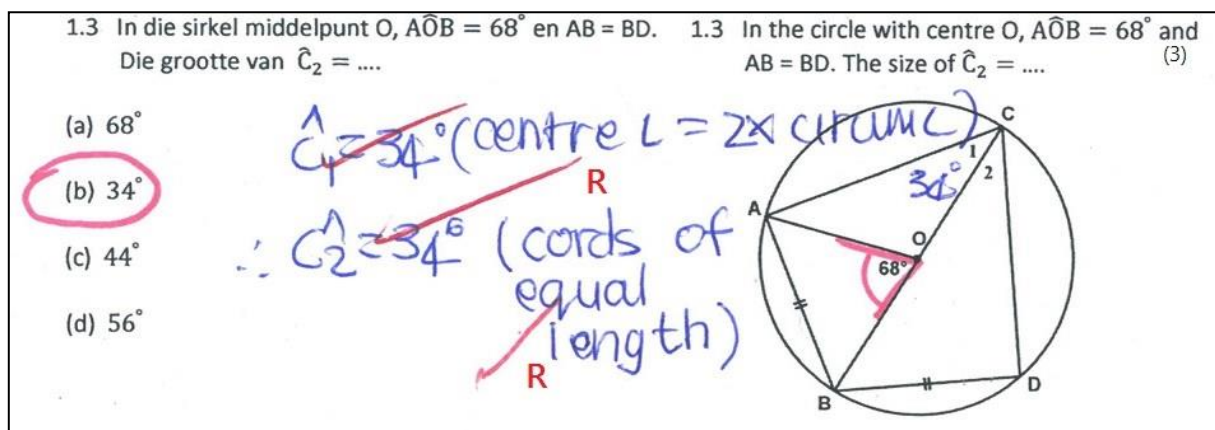 1.3 In die sirkel middelpunt O, AÔB = 68° en AB = BD.
Die grootte van Ĉ₂ = ....
1.3 In the circle with centre O, AÔB = 68° and
AB = BD. The size of Ĉ₂ = ....
(3)
(a) 68°
(b) 34°
(c) 44°
(d) 56°
Ĉ₁ = 34° (centre ∠ = 2x circum ∠)
R
∴ Ĉ₂ = 34° (cords of
equal
length)
R
C
1
2
34°
A
O
68°
B
D